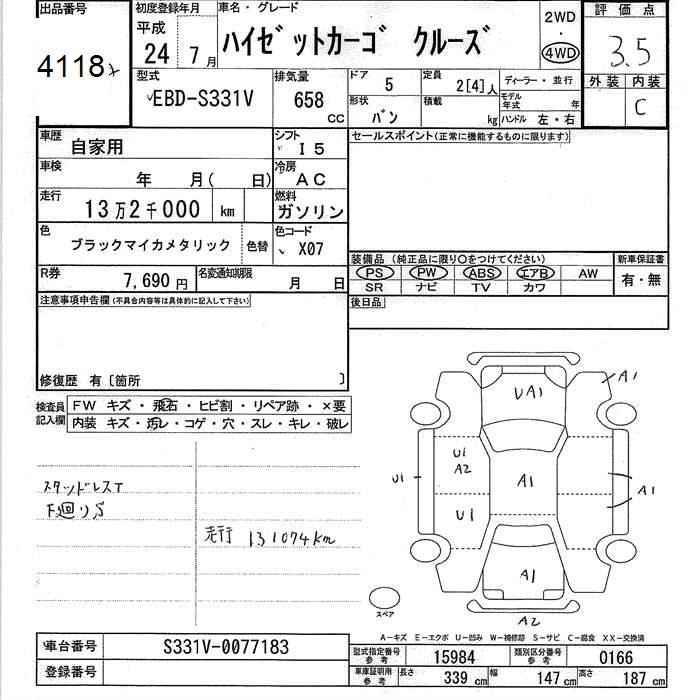 出品番号
4118
初度登録年月
平成
24 7月
車名・グレード
ハイゼットカーゴ クルーズ
2WD
・
4WD
評価点
3.5
外装 内装
C
型式
EBD-S331V
排気量
658
CC
ドア
5
定員
2[4]人
ディーラー・並行
形状
バン
積載
kg
モデル年式 年
ハンドル 左・右
車歴
自家用
シフト
I5
セールスポイント(正常に機能するものに限ります)
車検
年 月( 日)
冷房
AC
走行
13万2千000 km
燃料
ガソリン
色
ブラックマイカメタリック
色替
色コード
X07
装備品(純正品に限り○をつけてください)
新車保証書
PS PW ABS エアB AW
有・無
SR ナビ TV カワ
R券
7,690円
名変通知期限
月 日
後日品
注意事項申告欄(不具合内容等は具体的に記入して下さい)
修復歴 有〔箇所 〕
検査員記入欄
FW キズ・飛石・ヒビ割・リペア跡・×要
内装 キズ・汚レ・コゲ・穴・スレ・キレ・破レ
スタッドレスT
F廻りS
走行 131074km
UA1
A1
U1
A2
U1
U1
A1
A1
A1
A2
スペア
A-キズ E-エクボ U-凹み W-補修跡 S-サビ C-腐食 XX-交換済
車台番号
S331V-0077183
型式指定番号
参考
15984
類別区分番号
参考
0166
登録番号
車庫証明用
参考
長さ
339 cm
幅
147 cm
高さ
187 cm